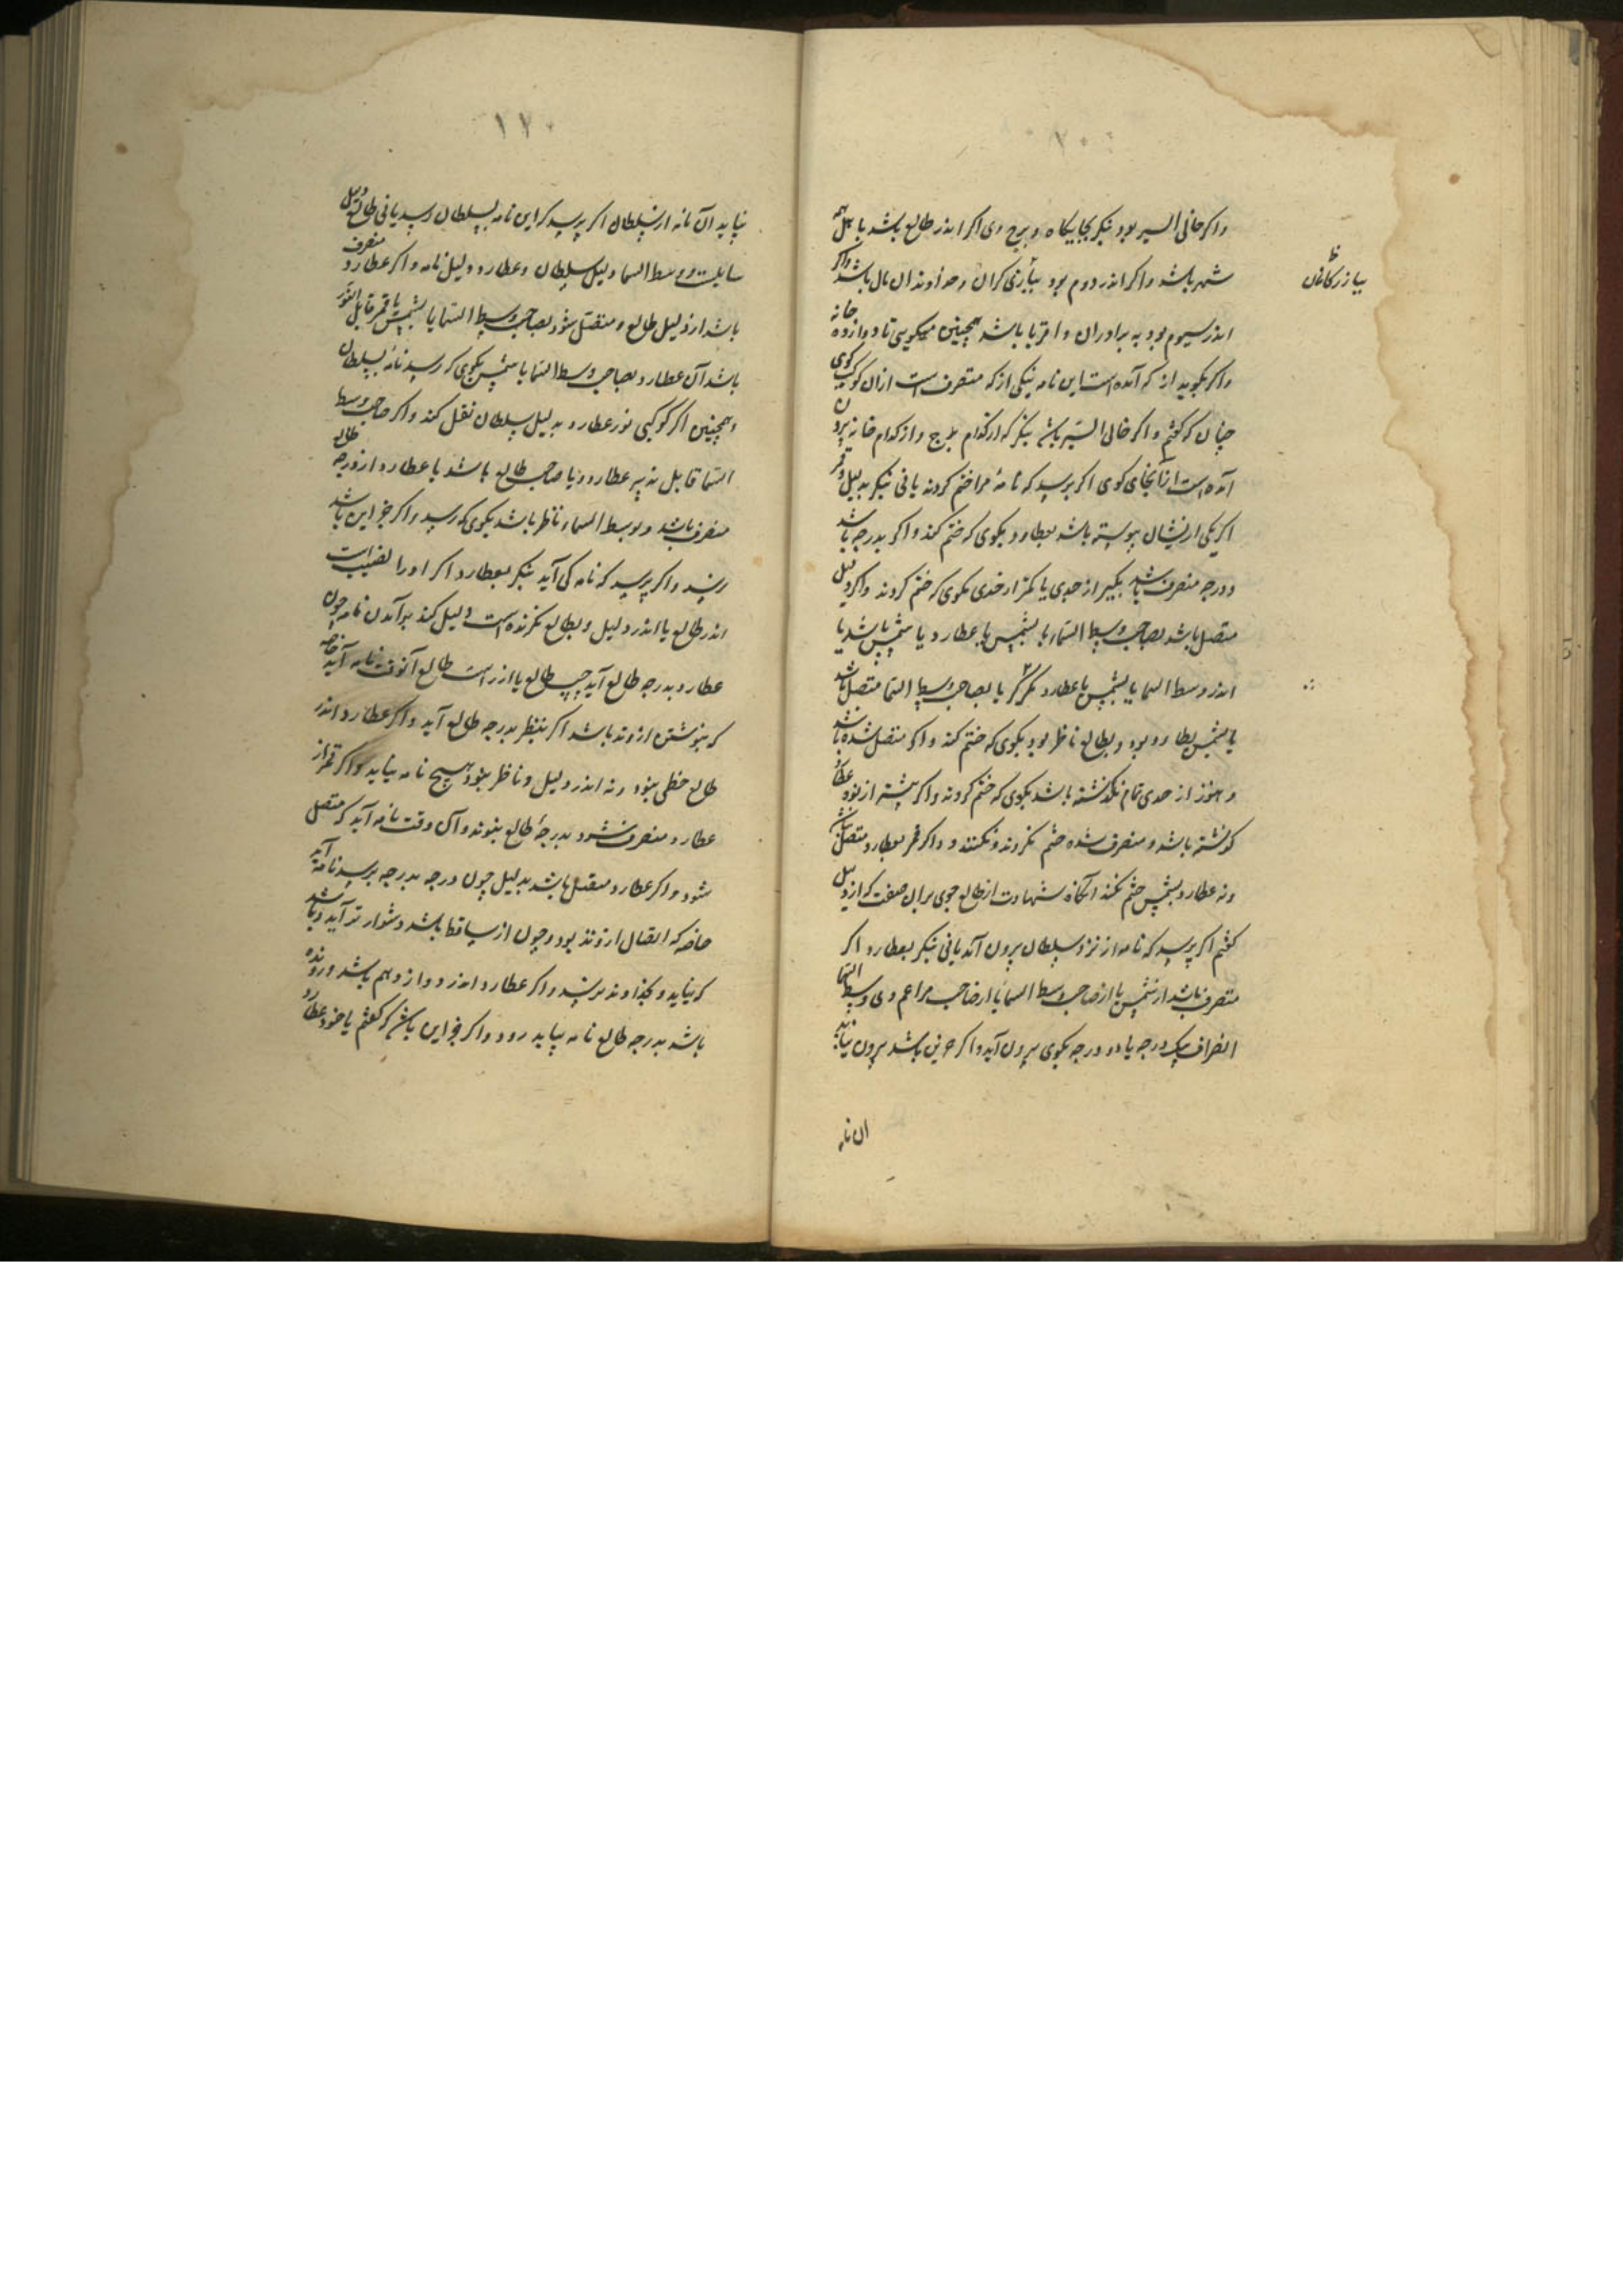 واکر خالی السیر بود بنکر بجایکاه و برج وی اکر اندر طالع باشد با اهل همه
شهر باشد واکر اندر دوم بود ببازرگانان و خداوندان مال باشد واکر
بیازرکانان
اندر سیوم بود به برادران و اقربا باشد همچنین میکویی تا دوازده خانه
واکر بکوید از که آمده است این نامه بنکی از که منصرف است ازان کوکب کوی
چنان که کفتم واکر خالی السیر باشد بنکر که از کدام برج و از کدام خانه بیرون
آمده است از آنجای کوی اکر پرسد که نامهٔ مرا ختم کردند یا نی بنکر بدلیل و قمر
اکر یکی ازیشان پیوسته باشد بعطارد بکوی که ختم کند واکر بدرجه باشد
و درجه منصرف باشد بکیر از حدی یا کمتر از حدی بکوی که ختم کردند واکر دلیل
متصل باشد بصاحب وسط السماء یا بشمس یا عطارد یا شمس باشد یا
اندر وسط السما یا بشمس یا عطارد نکر یا بصاحب وسط السما متصل باشد
یا شمس بعطارد بود و بطالع ناظر بود بکوی که ختم کند واکر متصل شده باشد
و هنوز از حدی تمام نکذشته باشد بکوی که ختم کردند واکر بیشتر از نور عطارد
کذشته باشد و منصرف شده ختم نکردند و نکنند و واکر قمر بعطارد متصل نباشد
و نه عطارد بشمس ختم نکند آنکاه شهادت از طالع جوی بران صفت که از دلیل
کفتم اکر پرسد که نامه از نزد سلطان برون آمد یا نی بنکر بعطارد اکر
منصرف باشد از شمس یا از صاحب وسط السما یا از صاحب مزاعم وی وسط السما
انصراف یک درجه یا دو درجه بکوی برون آید واکر جز این باشد برون نیاید
ان نامه
١٢٠
نیاید ان نامه از سلطان اکر پرسد که این نامه بسلطان رسد یا نی طالع دلیل
سایلست و وسط السما دلیل سلطان و عطارد دلیل نامه واکر عطارد منصرف
باشد از دلیل طالع و متصل شود بصاحب وسط السما یا بشمس یا قمر قابل النور
باشد آن عطارد بصاحب وسط السما یا شمس بکوی که رسد نامه بسلطان
و همچنین اکر کوکبی نور عطارد بدلیل سلطان نقل کند واکر صاحب وسط
السما قابل تدبیر عطارد و یا صاحب طالع باشد یا عطارد از درجه طالع
منصرف باشد و بوسط السماء ناظر باشد بکوی که رسد واکر جز این باشد
نرسد واکر پرسد که نامه کی آید بنکر بعطارد اکر او را نصیب است
اندر طالع یا اندر دلیل و بطالع نکرنده است دلیل کند برآمدن نامه چون
عطارد بدرجه طالع آید چپ طالع یا از راست طالع آنوقت نامه آید خاصه
که بنوشتن ازوند باشد اکر بنظر بدرجه طالع آید واکر عطارد اندر
طالع حظی نبود و نه اندر دلیل و ناظر نبود هیچ نامه نیاید واکر قمر از
عطارد منصرف شود بدرجهٔ طالع نبوند و آن وقت نامه آید که متصل
شود واکر عطارد متصل باشد بدلیل چون درجه بدرجه برسد نامه آید
خاصه که اتصال ازوتد بود و چون از ساقط باشد دشوار تر آید و باشد
که نیاید و بخداوند نرسد واکر عطارد اندر دوازدهم باشد و رونده
باشد بدرجه طالع نامه بیاید زود واکر جز این باشد که کفتم یا خود عطارد